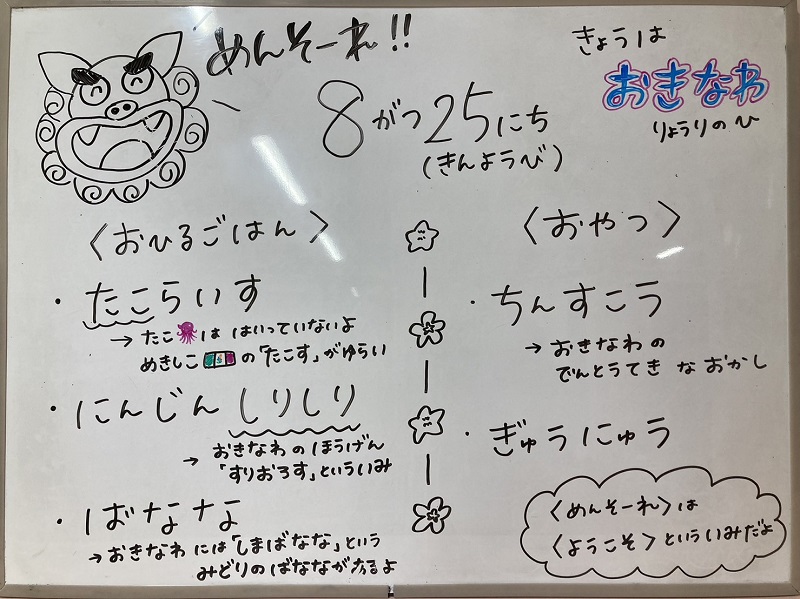 めんそーれ!!
きょうは
おきなわ
りょうりのひ
8がつ25にち
(きんようび)
〈おひるごはん〉
・たこらいす
→たこははいっていないよ
めきしこの「たこす」がゆらい
・にんじんしりしり
→おきなわのほうげん
「すりおろす」といういみ
・ばなな
→おきなわには「しまばなな」という
みどりのばなながあるよ
〈おやつ〉
・ちんすこう
→おきなわの
でんとうてきなおかし
・ぎゅうにゅう
〈めんそーれ〉は
〈ようこそ〉といういみだよ